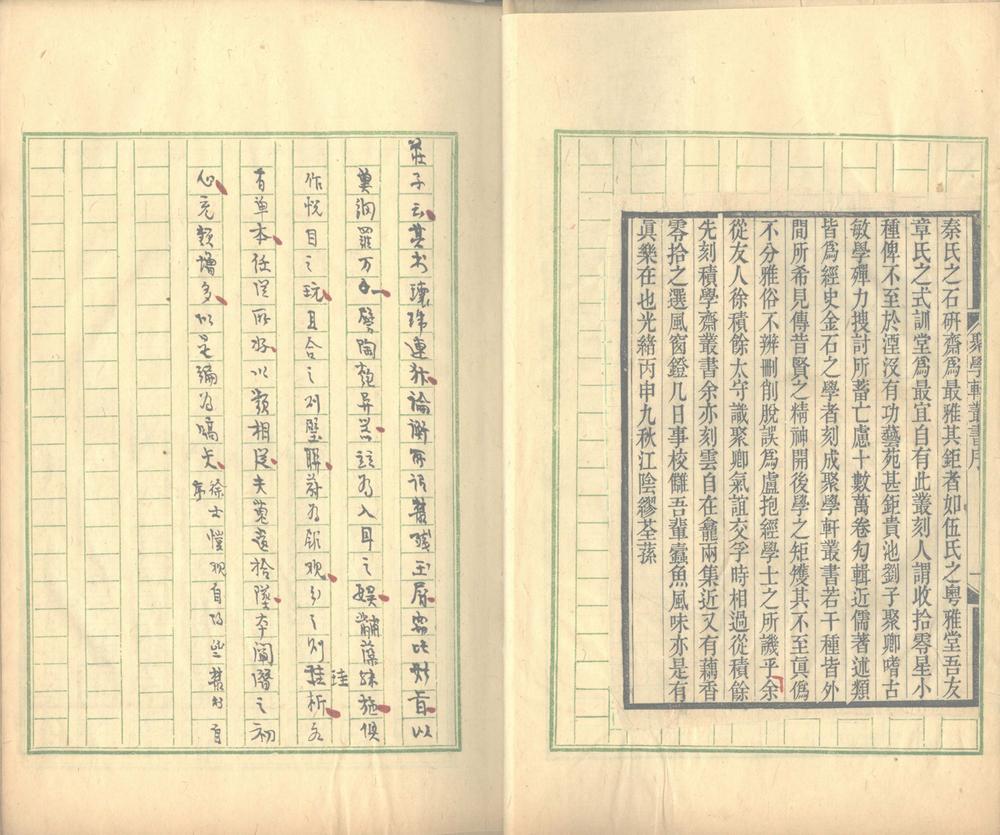 秦氏之石研齋爲最雅其鉅者如伍氏之粵雅堂吾友
章氏之式訓堂爲最宜自有此叢刻人謂收拾零星小
種俾不至於湮沒有功藝苑甚鉅貴池劉子聚卿嗜古
敏學殫力搜討所蓄亡慮十數萬卷勼輯近儒著述類
皆爲經史金石之學者刻成聚學軒叢書若干種皆外
間所希見傳昔賢之精神開後學之矩矱其不至眞僞
不分雅俗不辨刪削脫誤爲盧抱經學士之所譏乎余
從友人徐積餘太守識聚卿氣誼交孚時相過從積餘
先刻積學齋叢書余亦刻雲自在龕兩集近又有藕香
零拾之選風窗鐙几日事校讎吾輩蠹魚風味亦是有
眞樂在也光緒丙申九秋江陰繆荃蓀
聚學軒叢書序
一
莊子云其書瓌瑋連犿論衡
葉洞羅万
譬陶匏异器竝为入耳之娱黼藻殊施俱
作悦目之玩且合之
为
观
之则
有单本任从所好以类相从夫蒐遗拾坠本阐潜之初
心充类增多
以是编为嚆矢 徐士恺观自得斋丛书自
序